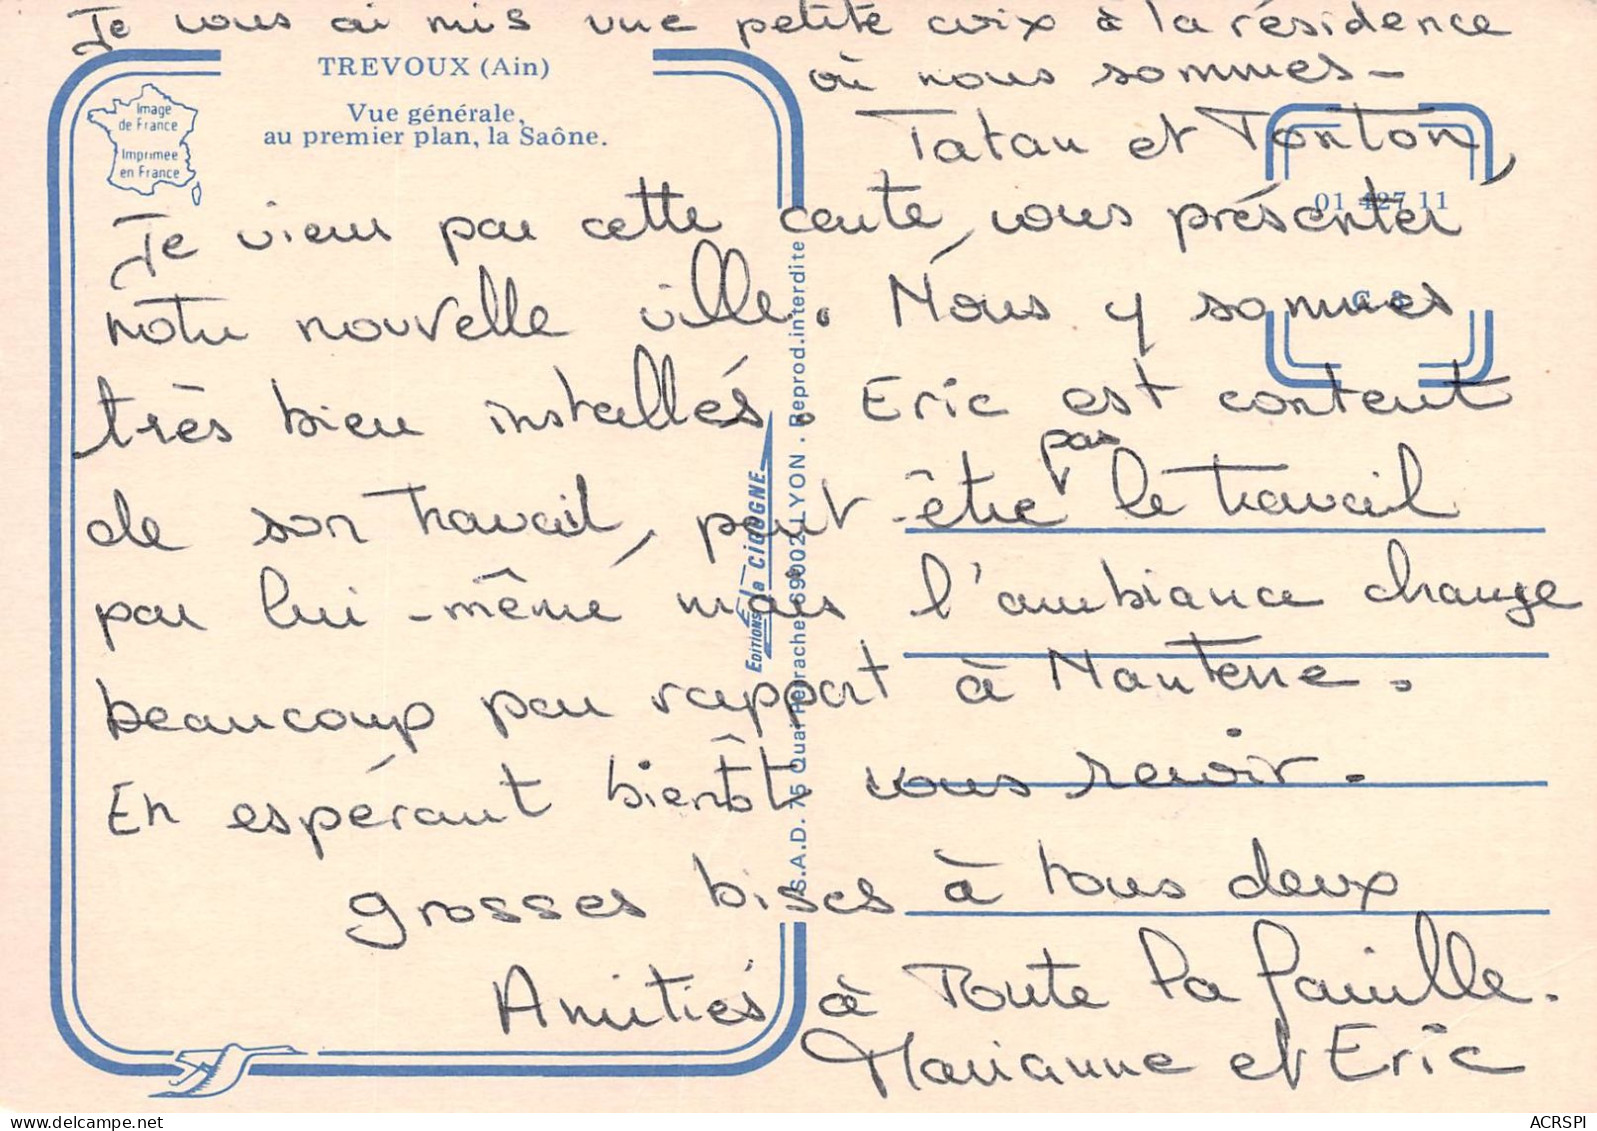 Je vous ai mis une petite croix à la résidence
où nous sommes -
TREVOUX (Ain)
Vue générale,
au premier plan, la Saône.
Image
de France
Imprimée
en France
01 427 11
Tatan et Tonton,
Je viens par cette carte, vous présenter
notre nouvelle ville. Nous y sommes
très bien installés. Eric est content
de son travail, peut-être pas le travail
par lui-même mais l'ambiance change
beaucoup par rapport à Nanterre.
En espérant bientôt vous revoir.
grosses bises à tous deux
Amitiés à Toute la famille.
Marianne et Eric
Editions la CIGOGNE
S.A.D. 75 Quai Perrache 69002 LYON . Reprod. interdite
ACRSPI